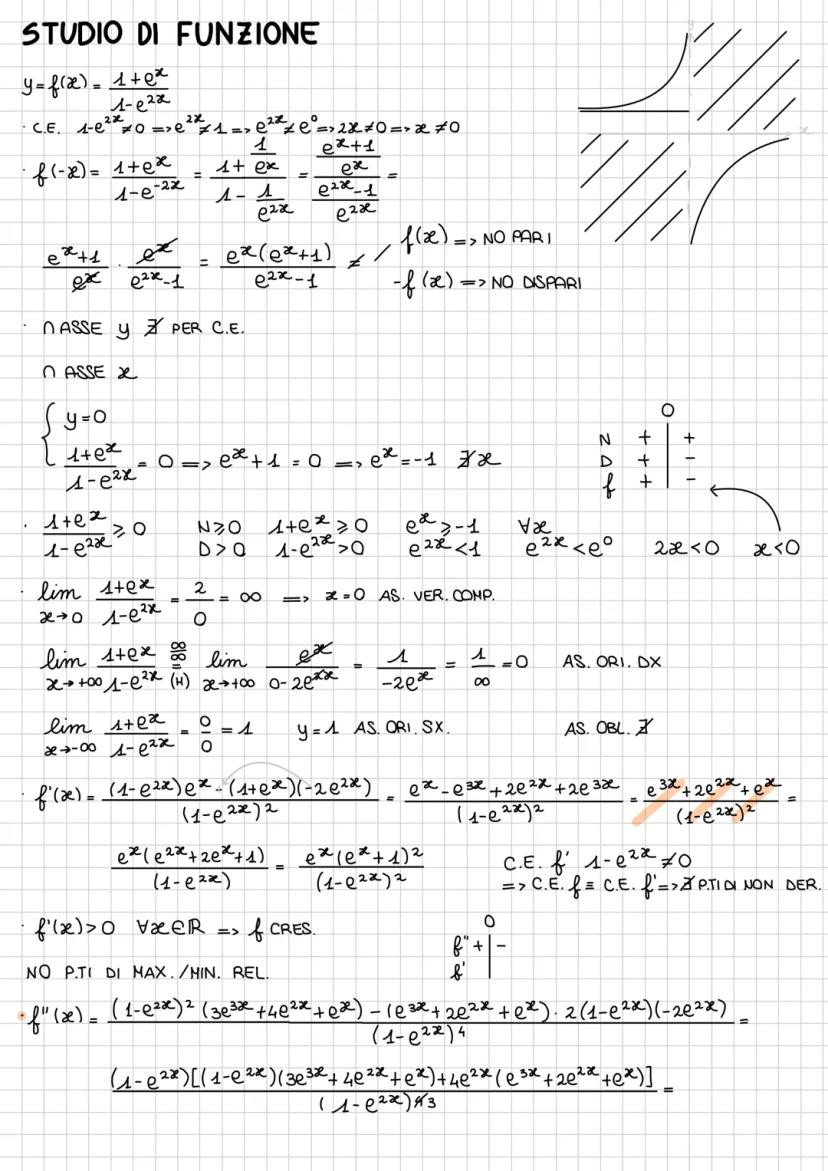 STUDIO DI FUNZIONE
y=f(x) = (1+e^x)/(1-e^{2x})
· C.E. 1-e^{2x}≠0 => e^{2x}≠1 => e^{2x}≠e^0 => 2x≠0 => x≠0
· f(-x) = (1+e^x)/(1-e^{-2x}) = (1+1/e^x)/(1-1/e^{2x}) = ((e^x+1)/e^x)/((e^{2x}-1)/e^{2x}) =
(e^x+1)/e^x · e^{2x}/(e^{2x}-1) = e^x(e^x+1)/(e^{2x}-1) ≠ / f(x) => NO PARI
-f(x) => NO DISPARI
· ∩ ASSE y ∄ PER C.E.
∩ ASSE x
{ y=0
(1+e^x)/(1-e^{2x}) = 0 => e^x+1 = 0 => e^x=-1 ∄x
0
N + +
D + -
f + -
· (1+e^x)/(1-e^{2x}) ≥ 0 N≥0 1+e^x≥0 e^x≥-1 ∀x
D>0 1-e^{2x}>0 e^{2x}<1 e^{2x}<e^0 2x<0 x<0
· lim x→0 (1+e^x)/(1-e^{2x}) = 2/0 = ∞ => x=0 AS. VER. COMP.
lim x→+∞ (1+e^x)/(1-e^{2x}) ∞/∞ = (H) lim x→+∞ e^x/(0-2e^{2x}) = 1/(-2e^x) = 1/∞ = 0 AS. ORI. DX
lim x→-∞ (1+e^x)/(1-e^{2x}) = 0/0 = 1 y=1 AS. ORI. SX. AS. OBL. ∄
· f'(x) = ((1-e^{2x})e^x - (1+e^x)(-2e^{2x}))/(1-e^{2x})^2 = (e^x-e^{3x}+2e^{2x}+2e^{3x})/(1-e^{2x})^2 = (e^{3x}+2e^{2x}+e^x)/(1-e^{2x})^2 =
e^x(e^{2x}+2e^x+1)/(1-e^{2x}) = e^x(e^x+1)^2/(1-e^{2x})^2 C.E. f' 1-e^{2x}≠0
=> C.E. f ≡ C.E. f' => ∄ P.TI DI NON DER.
· f'(x)>0 ∀x∈ℝ => f CRES.
0
f" + -
f'
NO P.TI DI MAX./MIN. REL.
· f"(x) = ((1-e^{2x})^2(3e^{3x}+4e^{2x}+e^x)-(e^{3x}+2e^{2x}+e^x)·2(1-e^{2x})(-2e^{2x}))/(1-e^{2x})^4 =
(1-e^{2x})[(1-e^{2x})(3e^{3x}+4e^{2x}+e^x)+4e^{2x}(e^{3x}+2e^{2x}+e^x)]/(1-e^{2x})^3 =